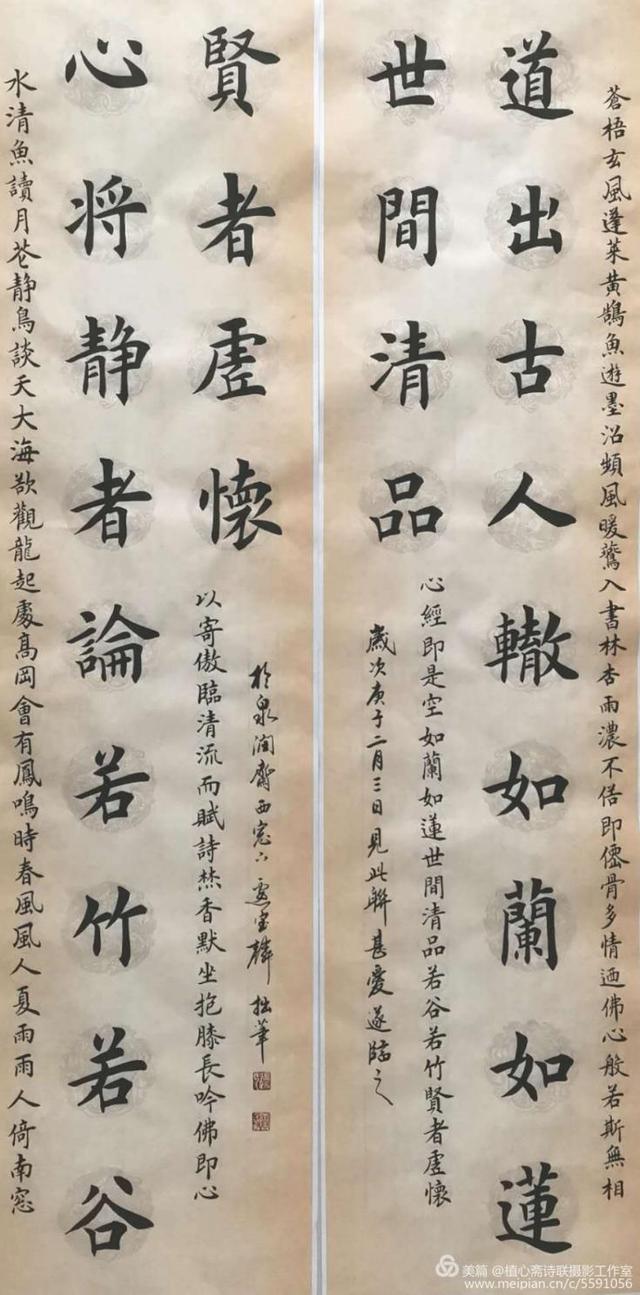 蒼梧玄風蓬萊黄鵠魚遊墨沼頻風暖鶯入書林杏雨濃不俗即僊骨多情迺佛心般若斯無相
道出古人轍如蘭如蓮
世間清品
心經即是空如蘭如蓮世間清品若谷若竹賢者虛懷
歲次庚子二月三日見此聯甚愛遂臨之
水清魚讀月花静鳥談天大海欲觀龍起處髙岡會有鳳鳴時春風風人夏雨雨人倚南窓
心将静者論若竹若谷
賢者虛懷
以寄傲臨清流而賦詩焚香默坐抱膝長吟佛即心
於泉润齋西窓下 拙筆
美篇 @植心斋诗联摄影工作室
www.meipian.cn/c/5591056